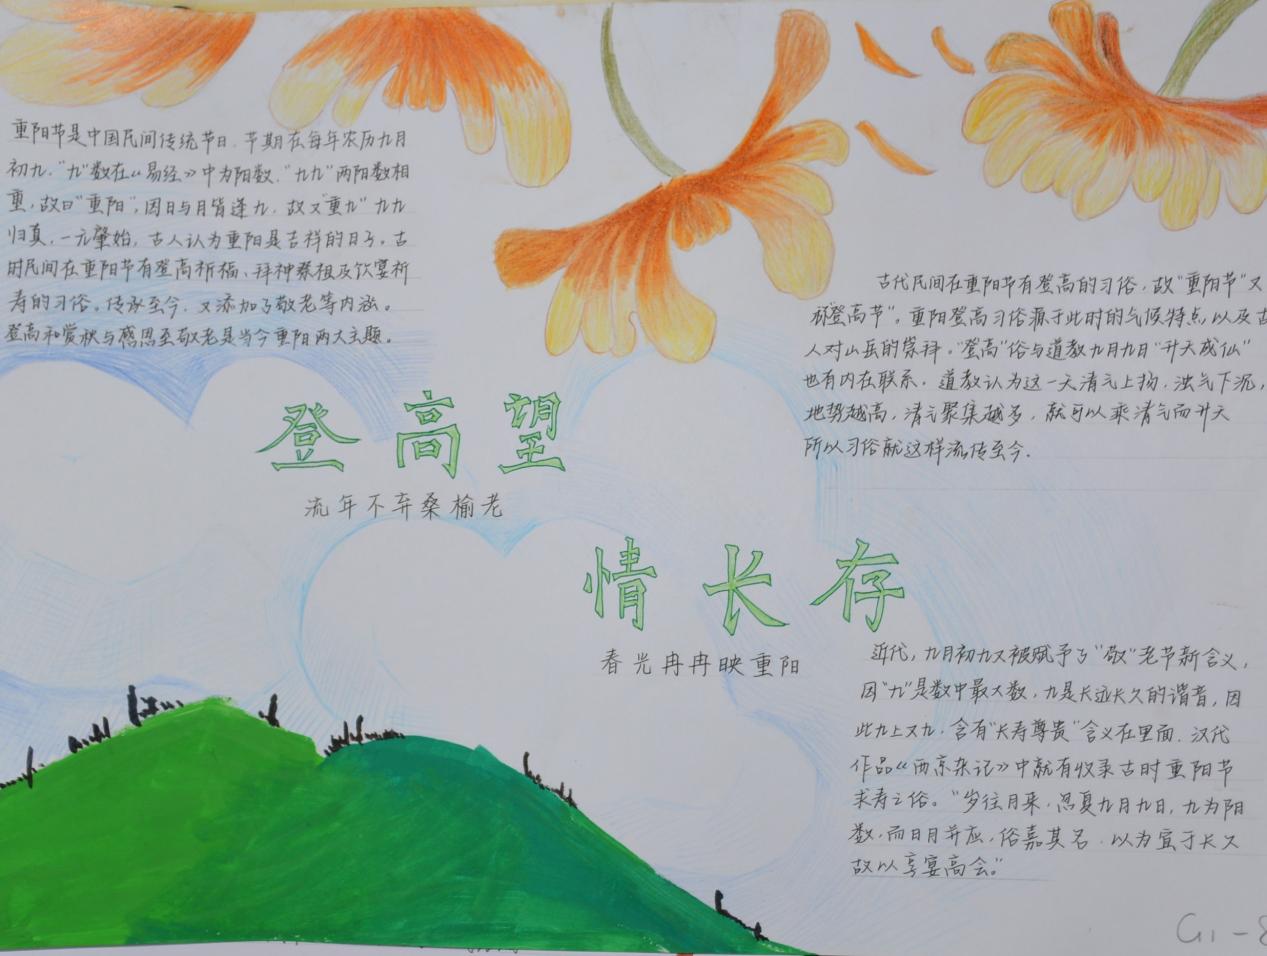 重阳节是中国民间传统节日，节期在每年农历九月
初九，“九”数在《易经》中为阳数，“九九”两阳数相
重，故曰“重阳”，因日与月皆逢九，故又“重九”九九
归真，一元肇始，古人认为重阳是吉祥的日子。古
时民间在重阳节有登高祈福、拜神祭祖及饮宴祈
寿的习俗。传承至今，又添加了敬老等内涵。
登高和赏秋与感恩至敬老是当今重阳两大主题。
古代民间在重阳节有登高的习俗，故“重阳节”又
称登高节”。重阳登高习俗源于此时的气候特点，以及古
人对山岳的崇拜。“登高”俗与道教九月九日“升天成仙”
也有内在联系，道教认为这一天清气上扬，浊气下沉，
地势越高，清气聚集越多，就可以乘清气而升天
所以习俗就这样流传至今．
登高望
流年不弃桑榆老
情长存
春光冉冉映重阳
近代，九月初九又被赋予了“敬”老节新含义，
因“九”是数中最大数，九是长远长久的谐音，因
此九上又九，含有“长寿尊贵”含义在里面．汉代
作品《西京杂记》中就有收录古时重阳节
求寿之俗。“岁往月来，忽复九月九日，九为阳
数，而日月并应，俗嘉其名，以为宜于长久
故以享宴高会。”
G1-8